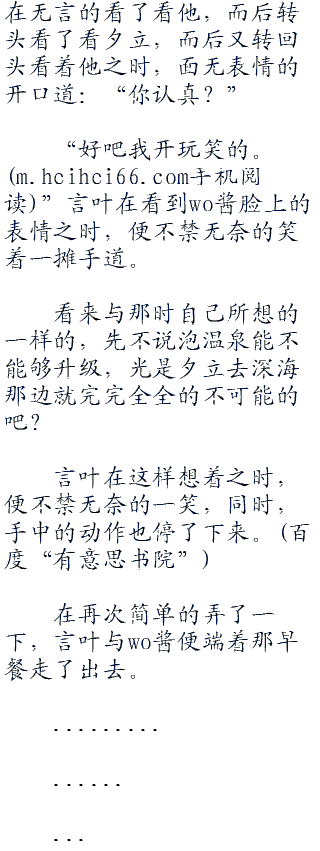 在无言的看了看他，而后转
头看了看夕立，而后又转回
头看着他之时，面无表情的
开口道：“你认真？”
“好吧我开玩笑的。
(m.hcihci66.com手机阅
读)”言叶在看到wo酱脸上的
表情之时，便不禁无奈的笑
着一摊手道。
看来与那时自己所想的
一样的，先不说泡温泉能不
能够升级，光是夕立去深海
那边就完完全全的不可能的
吧？
言叶在这样想着之时，
便不禁无奈的一笑，同时，
手中的动作也停了下来。(百
度“有意思书院”)
在再次简单的弄了一
下，言叶与wo酱便端着那早
餐走了出去。
.........
......
...